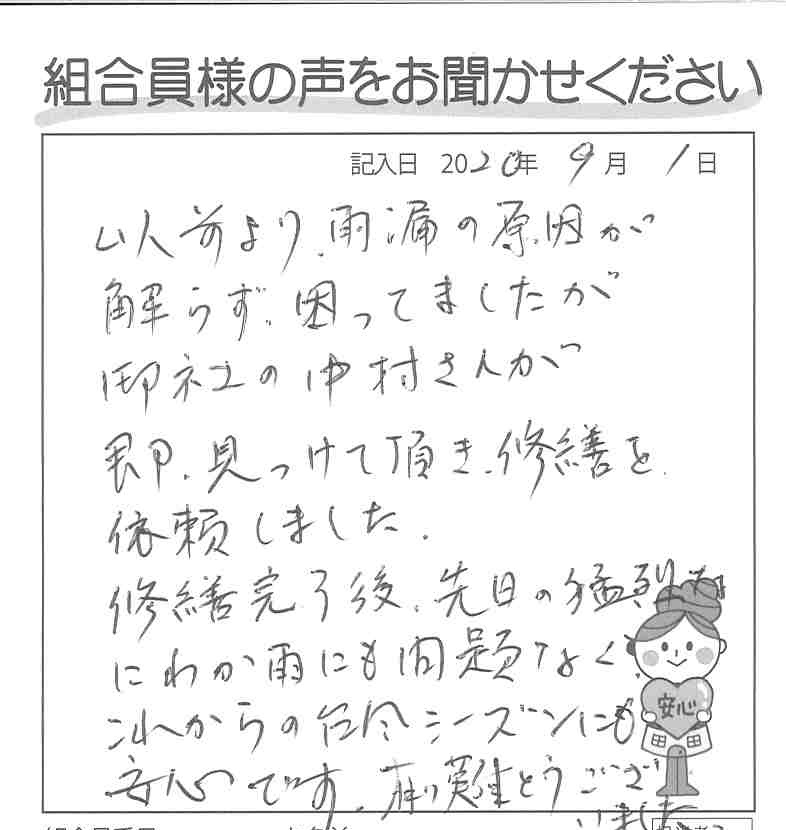 組合員様の声をお聞かせください
記入日 2020年 9月 1日
以前より、雨漏の原因が
解らず、困ってましたが
御社の中村さんが
即、見つけて頂き、修繕を
依頼しました。
修繕完了後、先日の猛烈な
にわか雨にも問題なく、
これからの台風シーズンにも
安心です。有り難とうござ
いました
安心